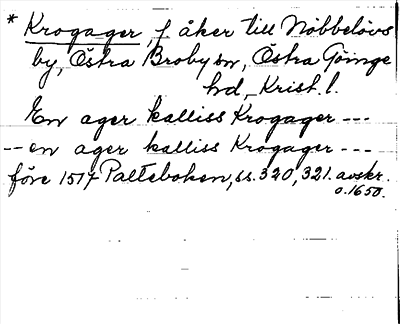 * Krogager, f åker till Nöbbelövs
by, Östra Broby sn, Östra Göinge
hd, Krist. l.
En ager kalliss Krogager ---
-- en ager kalliss Krogager ---
före 1517 Palteboken, ss. 320, 321. avskr.
o. 1650.